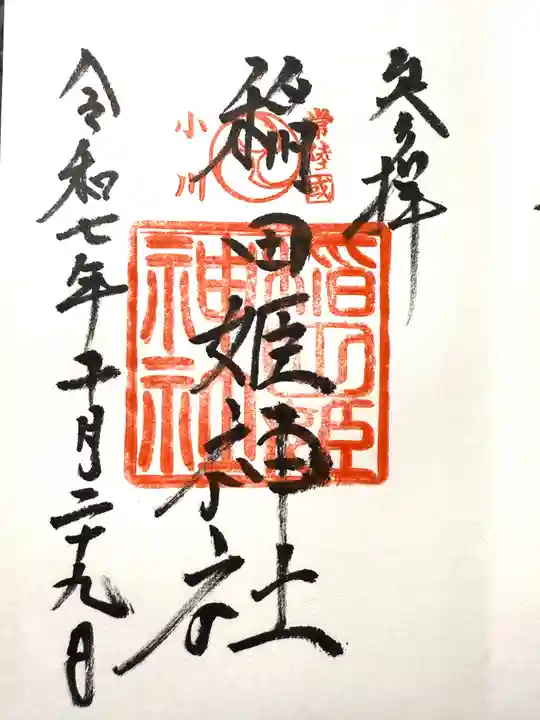 参拝
常陸國
小川
稲田姫神社
神社
令和七年十月二十九日